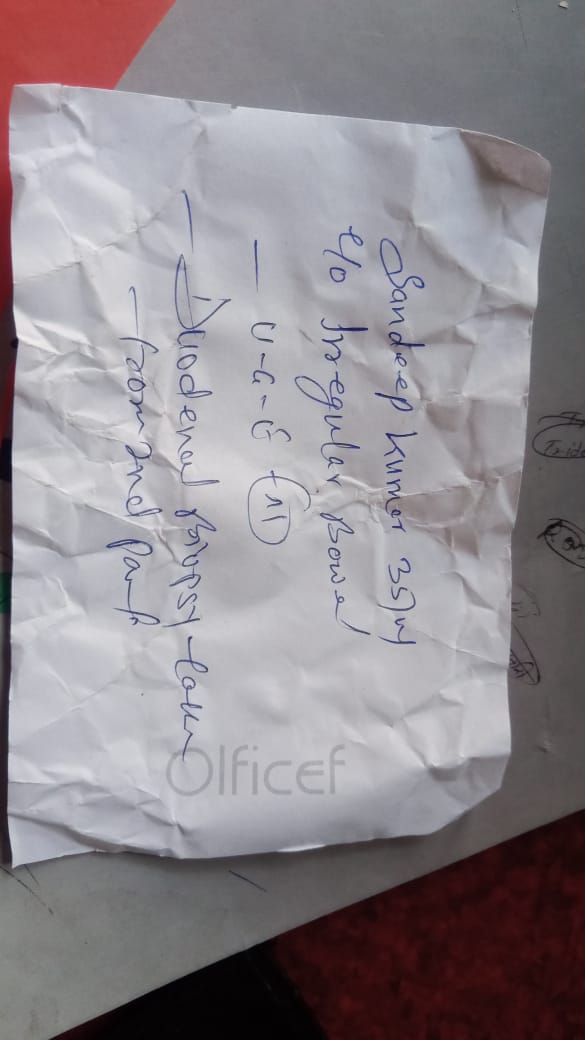 Sandeep Kumar 35/M
c/o Irregular Bowel
— U-G-E - (N)
— Duodenal Biopsy taken
— from 2nd Part
Olficef